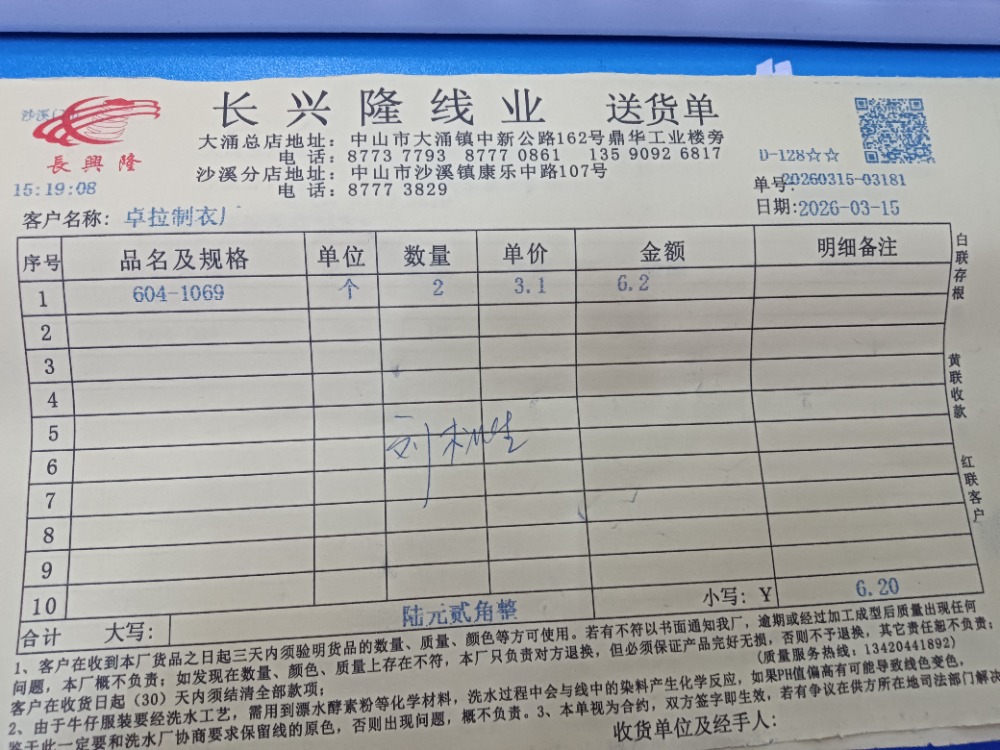 沙溪
長興隆
长兴隆线业 送货单
大涌总店地址：中山市大涌镇中新公路162号鼎华工业楼旁
电话：8773 7793 8777 0861 135 9092 6817
沙溪分店地址：中山市沙溪镇康乐中路107号
电话：8777 3829
15:19:08
D-128☆☆
单号:20260315-03181
日期:2026-03-15
客户名称：卓拉制衣厂
序号 品名及规格 单位 数量 单价 金额 明细备注
1 604-1069 个 2 3.1 6.2
2
3
4
5
6
7
8
9
10
合计 大写： 陆元贰角整 小写：Y 6.20
白联存根
黄联收款
红联客户
1、客户在收到本厂货品之日起三天内须验明货品的数量、质量、颜色等方可使用。若有不符以书面通知我厂，逾期或经过加工成型后质量出现任何
问题，本厂概不负责；如发现在数量、颜色、质量上存在不符，本厂只负责对方退换，但必须保证产品完好无损，否则不予退换，其它责任恕不负责；
客户在收货日起（30）天内须结清全部款项； (质量服务热线：13420441892)
2、由于牛仔服装要经洗水工艺，需用到漂水酵素粉等化学材料，洗水过程中会与线中的染料产生化学反应，如果PH值偏高有可能导致线色变色，
鉴于此一定要和洗水厂协商要求保留线的原色，否则出现问题，概不负责。3、本单视为合约，双方签字即生效，若有争议在供方所在地司法部门解决
收货单位及经手人：